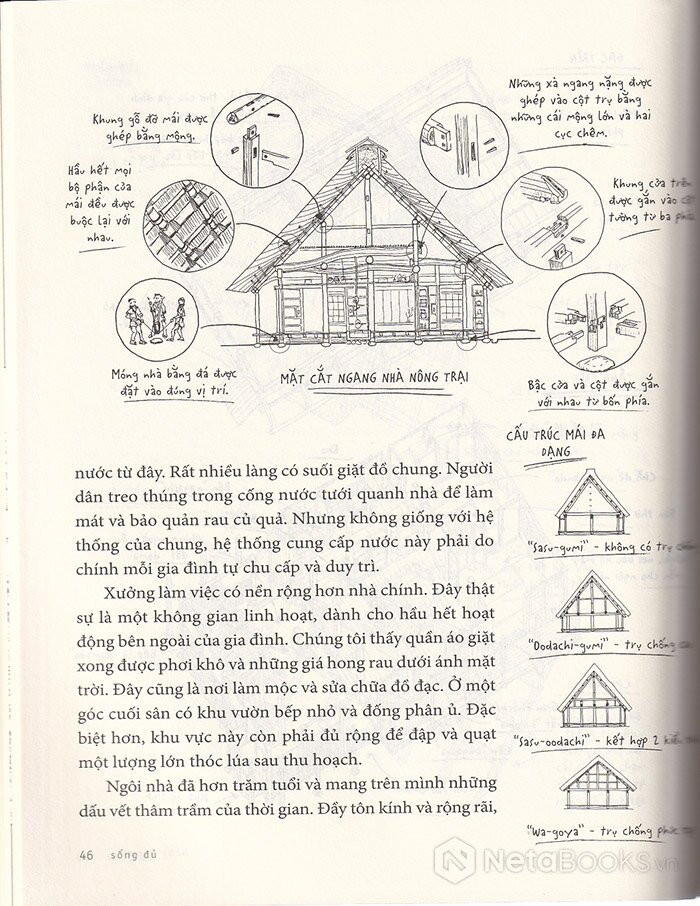 Khung gỗ đỡ mái được
ghép bằng mộng.
Những xà ngang nặng được
ghép vào cột trụ bằng
những cái mộng lớn và hai
cục chêm.
Hầu hết mọi
bộ phận của
mái đều được
buộc lại với
nhau.
Khung cửa trên
được gắn vào
tường từ ba phía
Móng nhà bằng đá được
đặt vào đúng vị trí.
MẶT CẮT NGANG NHÀ NÔNG TRẠI
Bậc cửa và cột được gắn
với nhau từ bốn phía.
CẤU TRÚC MÁI ĐA
DẠNG
"Sasu-gumi" - không có trụ
"Oodachi-gumi" - trụ chống
"Sasu-oodachi" - kết hợp 2 kiểu
"Wa-goya" - trụ chống
nước từ đây. Rất nhiều làng có suối giặt đồ chung. Người
dân treo thúng trong cống nước tưới quanh nhà để làm
mát và bảo quản rau củ quả. Nhưng không giống với hệ
thống của chung, hệ thống cung cấp nước này phải do
chính mỗi gia đình tự chu cấp và duy trì.
Xưởng làm việc có nền rộng hơn nhà chính. Đây thật
sự là một không gian linh hoạt, dành cho hầu hết hoạt
động bên ngoài của gia đình. Chúng tôi thấy quần áo giặt
xong được phơi khô và những giá hong rau dưới ánh mặt
trời. Đây cũng là nơi làm mộc và sửa chữa đồ đạc. Ở một
góc cuối sân có khu vườn bếp nhỏ và đống phân ủ. Đặc
biệt hơn, khu vực này còn phải đủ rộng để đập và quạt
một lượng lớn thóc lúa sau thu hoạch.
Ngôi nhà đã hơn trăm tuổi và mang trên mình những
dấu vết thâm trầm của thời gian. Đầy tôn kính và rộng rãi,
46 sống đủ
NetaBooks.vn